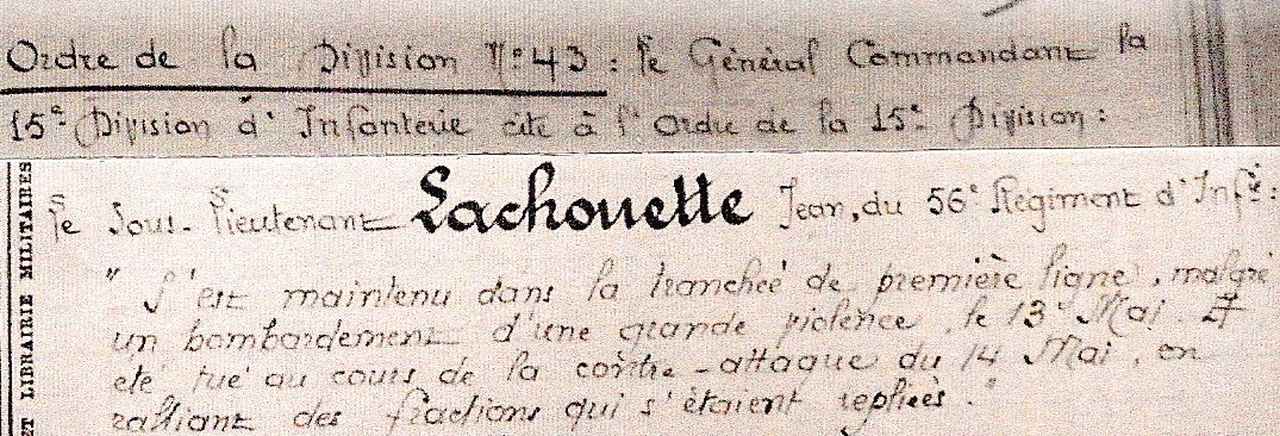 Ordre de la Division N° 43 : Le Général Commandant la
15e Division d'Infanterie cite à l'Ordre de la 15e Division :
Le Sous-Lieutenant Lachouette Jean, du 56e Régiment d'Infie :
" S'est maintenu dans la tranchée de première ligne, malgré
un bombardement d'une grande violence, le 13 Mai. A
été tué au cours de la contre-attaque du 14 Mai, en
ralliant des fractions qui s'étaient repliées. "
ET LIBRAIRIE MILITAIRES